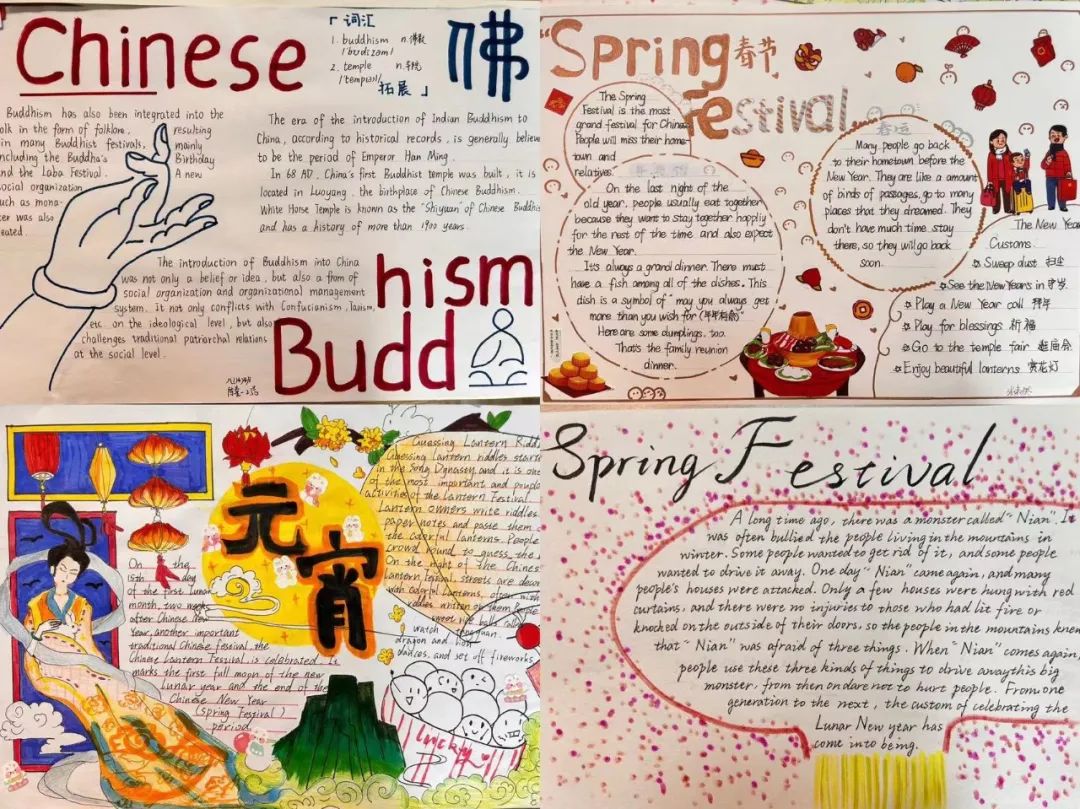 Chinese
「词汇
1. buddhism n. 佛教
2. temple n. 寺院
拓展」
佛
Buddhism has also been integrated into the
folk in the form of folklore, resulting
in many Buddhist festivals, mainly
including the Buddha's Birthday
and the Laba Festival. A new
social organization
such as mona-
ter was also
eated.
The era of the introduction of Indian Buddhism to
China, according to historical records, is generally believe
to be the period of Emperor Han Ming.
In 68 AD, China's first Buddhist temple was built, it is
located in Luoyang, the birthplace of Chinese Buddhism.
White Horse Temple is known as the "Shiyuan" of Chinese Buddhis
and has a history of more than 1900 years.
The introduction of Buddhism into China
was not only a belief or idea, but also a from of
social organization and organizational management
system. it not only conflicts with Confucianism, Taoism,
etc. on the ideological level, but also
challenges traditional patriarchal relations
at the social level.
hism
Budd
"Spring 春节
Festival
The Spring
Festival is the most
grand festival for Chinese
People will miss their home-
town and
relatives.
On the last night of the
old year, people usually eat together
because they want to stay together happliy
for the rest of the time and also expect
the New Year.
It's always a grand dinner. There must
have a fish among all of the dishes. This
dish is a symbol of "may you always get
more than you wish for (年年有余)"
Here are some dumplings, too.
That's the family reunion
dinner.
春运
Many people go back
to their hometown before the
New Year. They are like a amount
of birds of passages, go to many
places that they dreamed. They
don't have much time stay
there, so they will go back
soon.
The New Year
Customs.
Sweep dust 扫尘
See the New Years in 守岁
Play a New Year call 拜年
Play for blessings 祈福
Go to the temple fair 逛庙会
Enjoy beautiful lanterns 赏花灯
元宵
On the
15th day
of the first lunar
month, two weeks
after Chinese New
Year, another important
traditional Chinese fesival, the
Chinese Lantern Fesival is celebrated. It
marks the first full moon of the new
Lunar year and the end of the
Chinese New Year
(spring Fesfival)
period.
Guessing Lantern Riddl
Guessing lantern riddles starte
in the Song Dynasey and it is one
of the most important and popula
activities of the Lantern Festival.
Lantern owners write riddles
paper notes and paste them o
the colorful lanterns. People
crowd round to guess the
On the right of the Chinese
Lantern Fesival, streets are decor
with colorful Lanterns, often with
riddles written on them. People
sweet rice balls called
watch
dragon and lion
dances, and set off fireworks
lucky
Spring Festival
A long time ago, there was a monster called "Nian". It
was often bullied the people living in the mountains in
winter. Some people wanted to get rid of it, and some people
wanted to drive it away. One day "Nian" came again, and many
people's houses were attacked. Only a few houses were hung with red
curtains, and there were no injuries to those who had lit fire or
knocked on the outside of their doors, so the people in the mountains knew
that "Nian" was afraid of three things. When "Nian" comes again,
people use these three kinds of things to drive away this big
monster, from then on dare not to hurt people. From one
generation to the next, the custom of celebrating the
Lunar New year has
come into being.